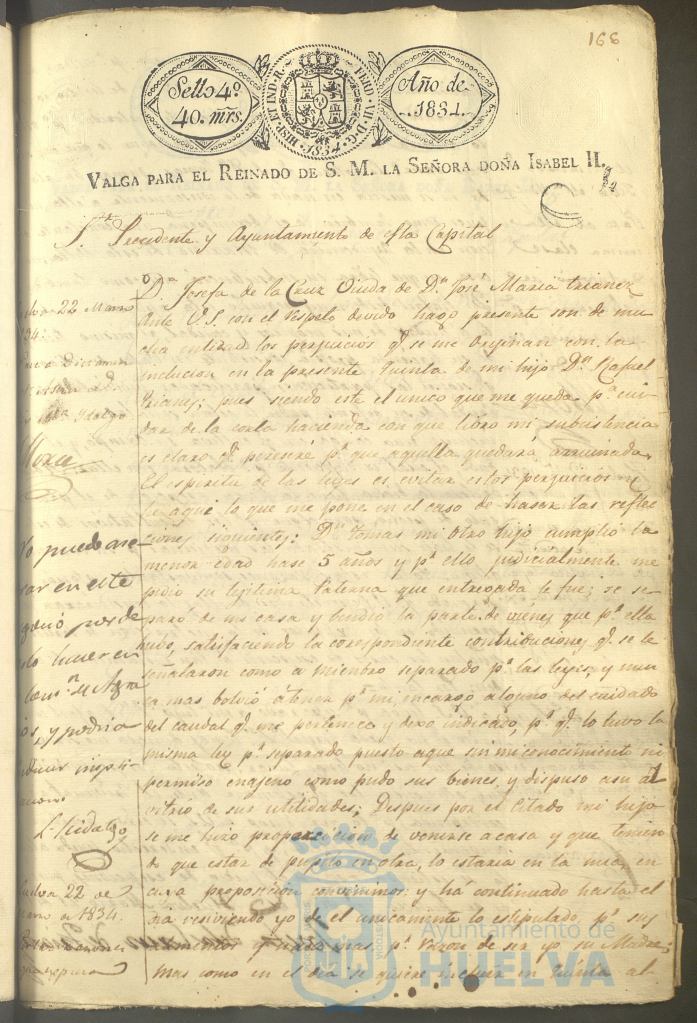 168
Sello 4º
40. mrs.
HISP. ET IND. R. FERD. VII. D. G. 1834
Año de
1834.
VALGA PARA EL REINADO DE S. M. LA SEÑORA DOÑA ISABEL II.
Precidente y Ayuntamiento de esta Capital
Dª Josefa de la Cruz Viuda de Dn José Maria trianez
Ante V.S. con el respeto devido hago presente son de mu
cha entidad los perjuicios q. se me originan con la
inclucion en la presente Quinta de mi hijo Dn Rafael
trianes; pues siendo este el unico que me queda pª cui
dar de la corta hacienda con que libro mi subsistencia
es claro q. pereseré pr que aquella quedará arruinada,
El espiritu de las leyes es evitar estos perjuicios y
lo que me pone en el caso de haser las refle
ciones siguientes: Dn tomas mi otro hijo cumplió la
menor edad hase 5 años y pr ello judicialmente me
pidio su legitima Paterna que entregada le fue; se se
paró de mi casa y bendió la parte de vienes que pr ella
hubo, satisfaciendo la correspondiente contribuciones q. se le
señalaron como a miembro separado pr las leyes, y nun
ca mas bolvió a tener pr mi encargo alguno del cuidado
del caudal q. me pertenece y dexo indicado, pr q. lo tuvo la
misma ley pr separado puesto aque sin mi conocimiento ni
permiso enageno como pudo sus bienes, y dispuso a su al
vitrio de sus utilidades; Despues por el citado mi hijo
se me hizo propocicion de venirse a casa y que tenien
do que estar de pupilo en otra, lo estaria en la mia, en
cuya proposicion convenimos y há continuado hasta el
dia resiviendo yo de el unicamente lo estipulado pr sus
alimentos y nada mas pr razon de ser yo su Madre;
Mas como en el dia se quiere incluir en Quinta al
22 Marzo
No puedo
en este
y podria
L. Hidalgo
22 de
1834.
Ayuntamiento de
HUELVA